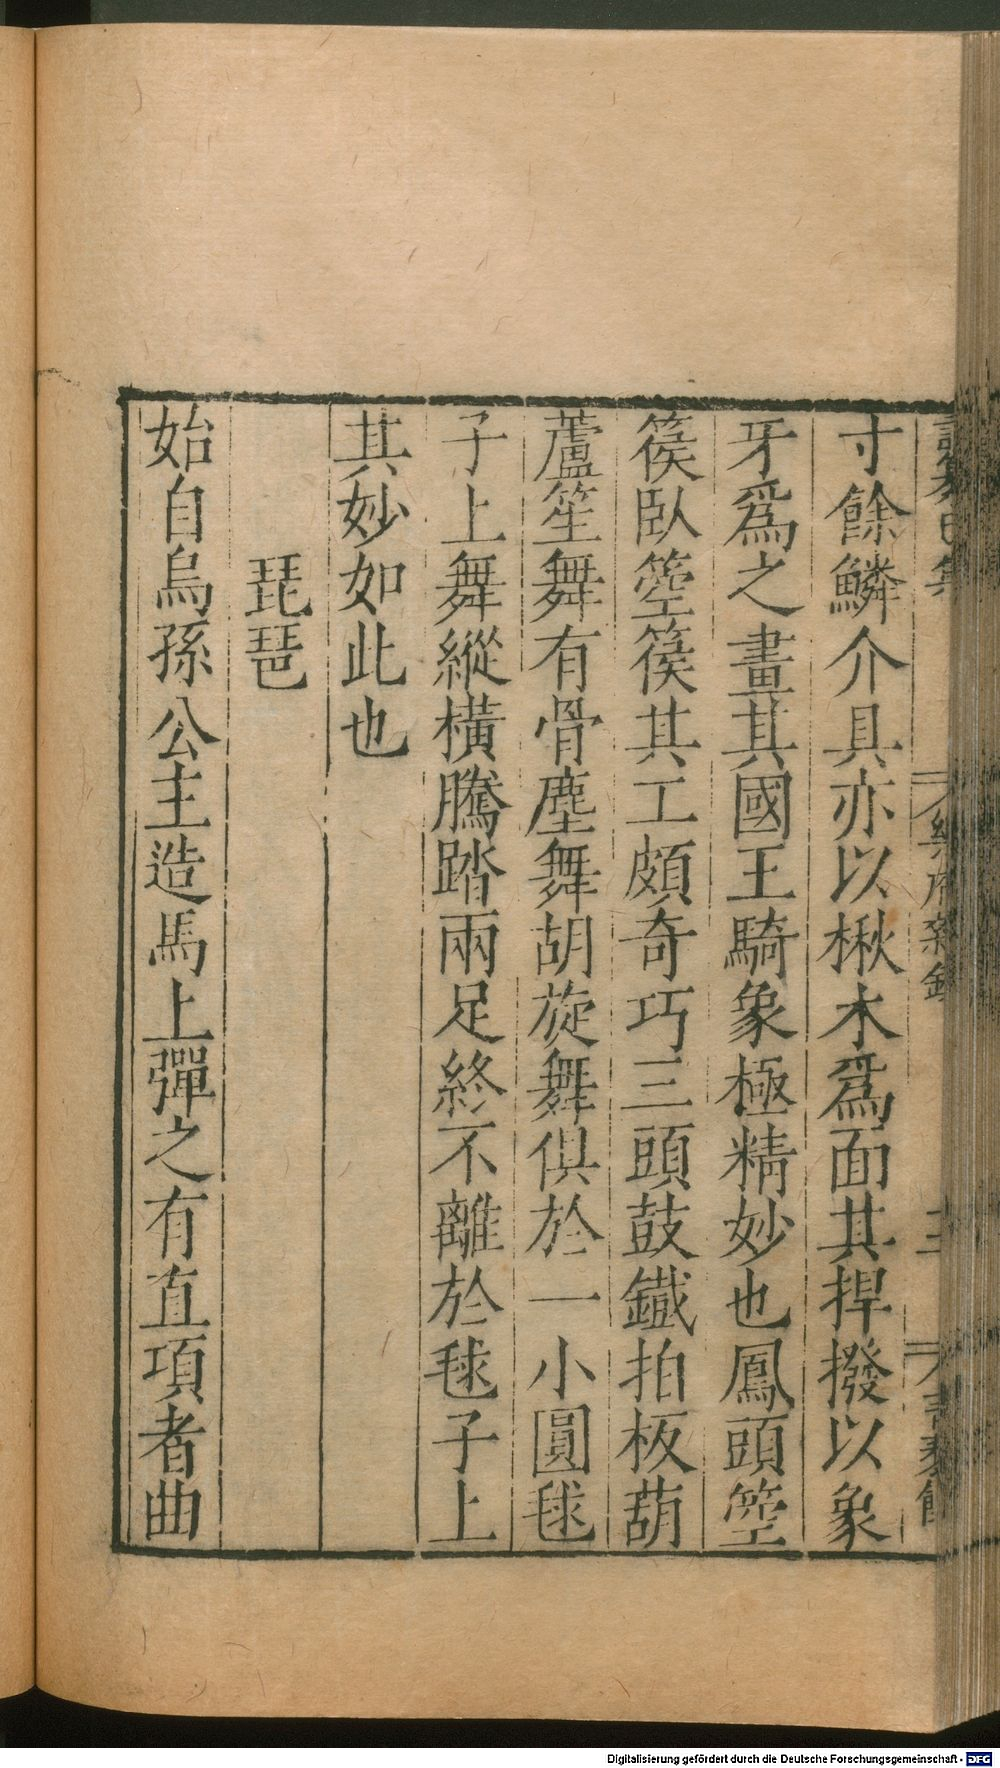 寸餘鱗介具亦以楸木爲面其捍撥以象
牙爲之畫其國王騎象極精妙也鳳頭箜
篌臥箜篌其工頗奇巧三頭鼓鐡拍板葫
蘆笙舞有骨塵舞胡旋舞俱於一小圓毬
子上舞縱橫騰踏兩足終不離於毬子上
其妙如此也
琵琶
始自烏孫公主造馬上彈之有直項者曲
Digitalisierung gefördert durch die Deutsche Forschungsgemeinschaft - DFG